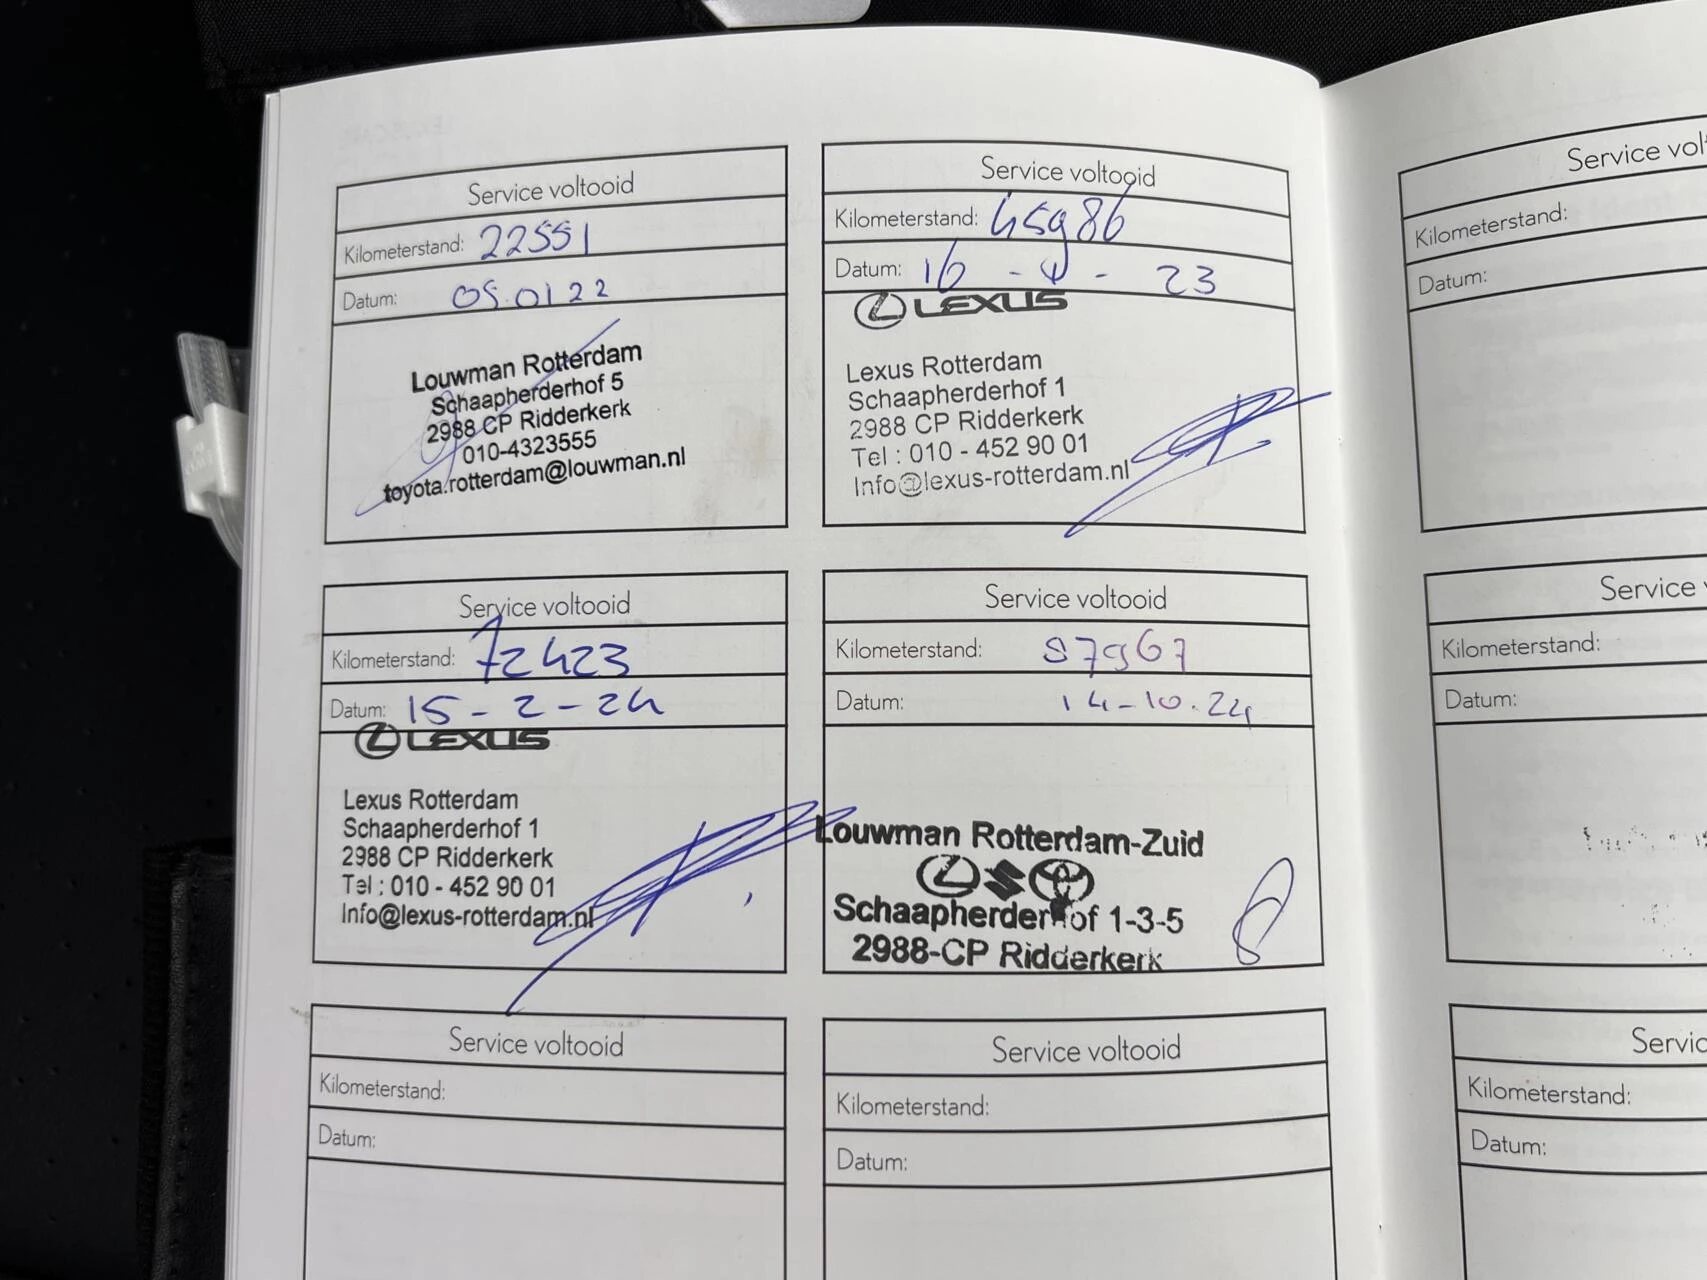 Service voltooid
Kilometerstand: 22551
Datum: 05.01 22
Louwman Rotterdam
Schaapherderhof 5
2988 CP Ridderkerk
010-4323555
toyota.rotterdam@louwman.nl
Service voltooid
Kilometerstand: 45986
Datum: 16 - - 23
LEXUS
Lexus Rotterdam
Schaapherderhof 1
2988 CP Ridderkerk
Tel : 010 - 452 90 01
Info@lexus-rotterdam.nl
Service voltooid
Kilometerstand: 72423
Datum: 15 - 2 - 24
LEXUS
Lexus Rotterdam
Schaapherderhof 1
2988 CP Ridderkerk
Tel : 010 - 452 90 01
Info@lexus-rotterdam.nl
Service voltooid
Kilometerstand: 87967
Datum: 14-10.24
Louwman Rotterdam-Zuid
Schaapherderhof 1-3-5
2988-CP Ridderkerk
Service voltooid
Kilometerstand:
Datum:
Service voltooid
Kilometerstand:
Datum:
Service vol
Kilometerstand:
Datum:
Service
Kilometerstand:
Datum:
Servic
Kilometerstand:
Datum: